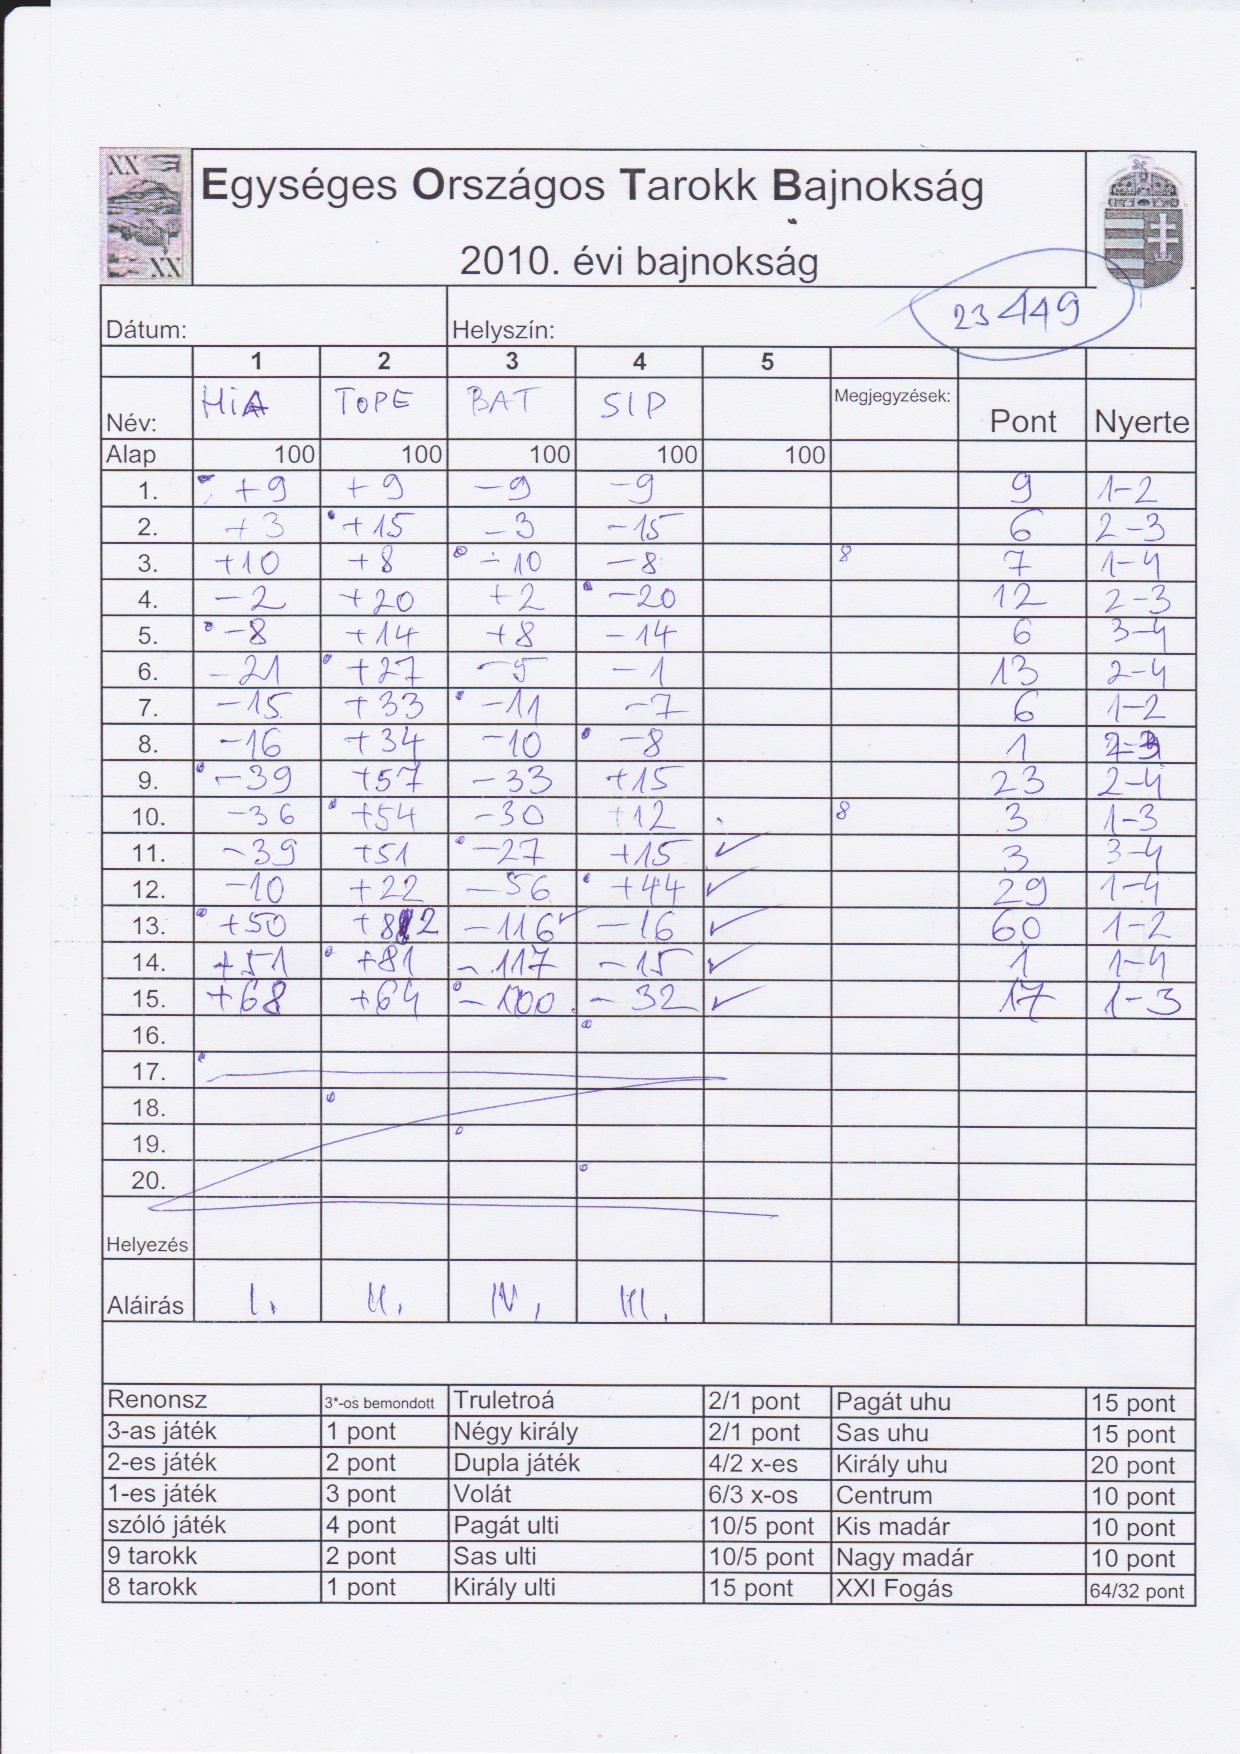 XX
XX
Egységes Országos Tarokk Bajnokság
2010. évi bajnokság
23449
Dátum: Helyszín:
1 2 3 4 5
Név: MiA TOPE BAT SIP Megjegyzések: Pont Nyerte
Alap 100 100 100 100 100
1. +9 +9 -9 -9 9 1-2
2. +3 +15 -3 -15 6 2-3
3. +10 +8 -10 -8 8 7 1-4
4. -2 +20 +2 -20 12 2-3
5. -8 +14 +8 -14 6 3-4
6. -21 +27 -5 -1 13 2-4
7. -15 +33 -11 -7 6 1-2
8. -16 +34 -10 -8 1 2-3
9. -39 +57 -33 +15 23 2-4
10. -36 +54 -30 +12 8 3 1-3
11. -39 +51 -27 +15 ✓ 3 3-4
12. -10 +22 -56 +44 ✓ 29 1-4
13. +50 +82 -116 ✓ -16 ✓ 60 1-2
14. +51 +81 -117 -15 ✓ 1 1-4
15. +68 +64 -100 -32 ✓ 17 1-3
16.
17.
18.
19.
20.
Helyezés
Aláírás I. II. IV. III.
Renonsz 3*-os bemondott Truletroá 2/1 pont Pagát uhu 15 pont
3-as játék 1 pont Négy király 2/1 pont Sas uhu 15 pont
2-es játék 2 pont Dupla játék 4/2 x-es Király uhu 20 pont
1-es játék 3 pont Volát 6/3 x-os Centrum 10 pont
szóló játék 4 pont Pagát ulti 10/5 pont Kis madár 10 pont
9 tarokk 2 pont Sas ulti 10/5 pont Nagy madár 10 pont
8 tarokk 1 pont Király ulti 15 pont XXI Fogás 64/32 pont